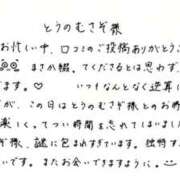 とうのむさぞ様
お忙しい中、口コミのご投稿ありがとうご
まさか綴、てくださるとは思わず、
ます。♡ いつもなんなく逆算し
が、この日はとうのむさぞ様とのお時
楽しく、てつい時間を忘れてしまいました
ぞ様、謎に包まれすぎています。独特す
いです。またお会いできますように。